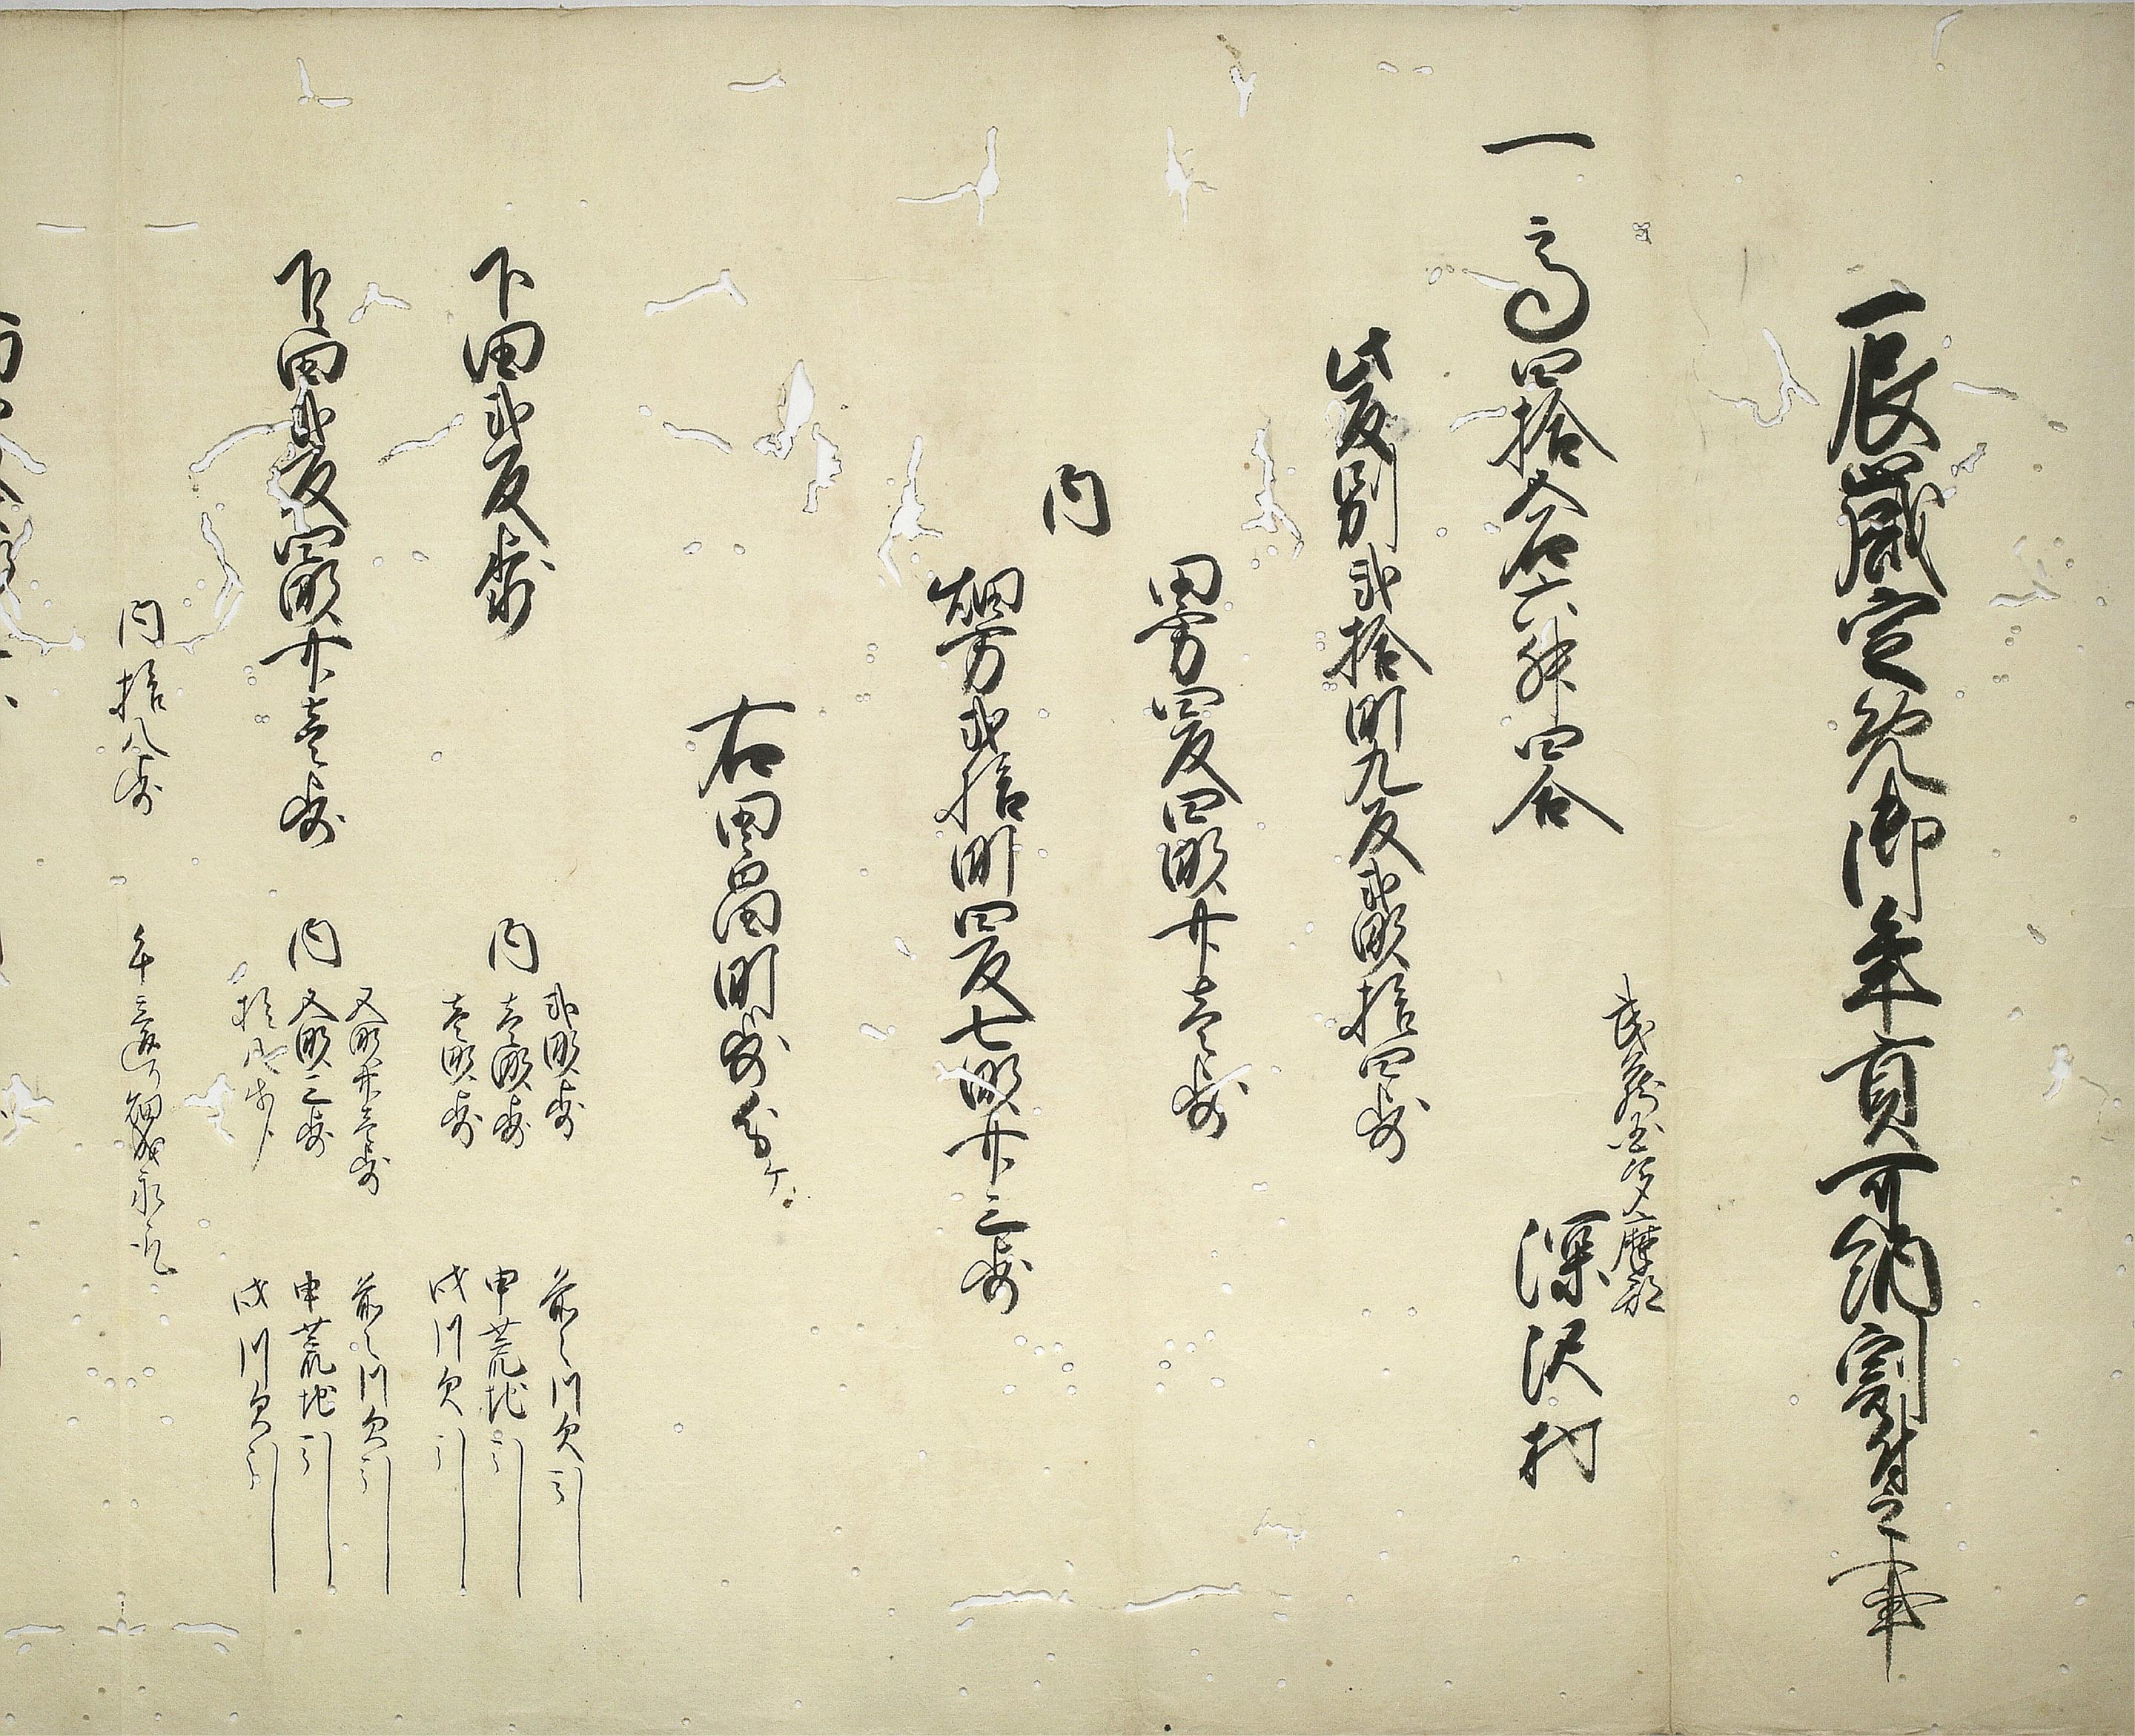 一辰歳定免御年貢可納割付之事
武蔵国多摩郡
深沢村
一高四拾五石六升四合
此反別弐拾町九反弐畝拾四歩
田方四反四畝廿壱歩
内
畑方弐拾町四反七畝廿三歩
右田畠町歩分ケ
下田弐反歩
内
弐畝歩 前々川欠引
壱畝歩 申荒地引
壱畝歩 戌川欠引
下々田弐反四畝廿壱歩
内
五畝廿壱歩 前々川欠引
五畝三歩 申荒地引
拾四歩 戌川欠引
内拾八歩